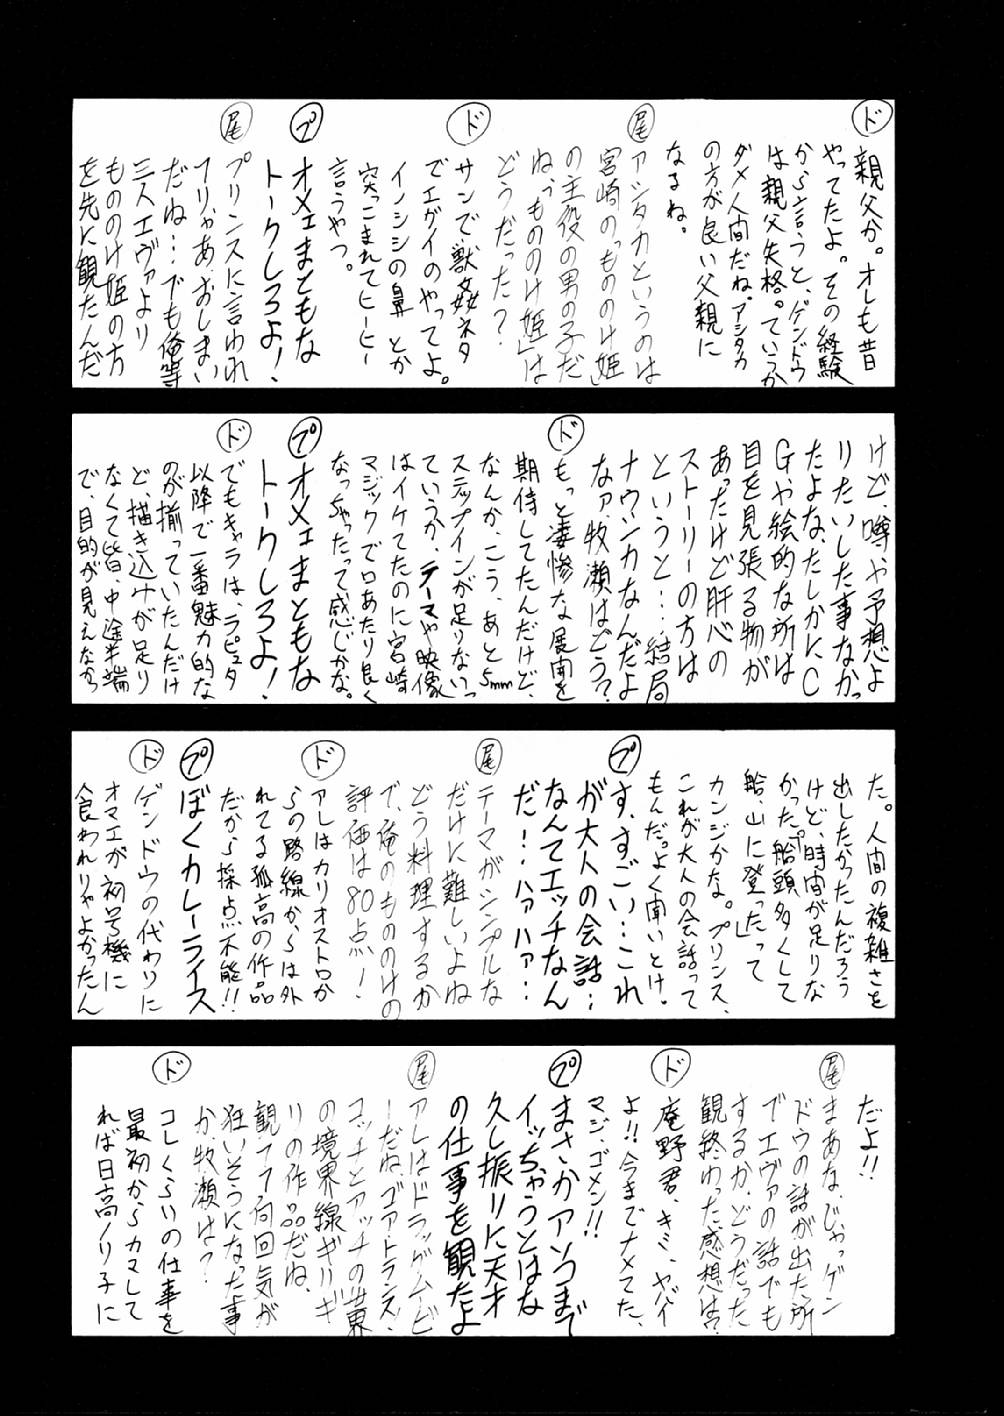 ド
親父か。オレも昔
やってたよ。その経験
から言うと、ゲンドウ
は親父失格。ていうか
ダメ人間だね。アシタカ
の方が良い父親に
なるね。
尾
アシタカというのは
宮崎の「もののけ姫」
の主役の男の子だ
ね。「もののけ姫」は
どうだった？
ド
サンで、獣姦ネタ
でエグイのやってよ。
イノシシの鼻とか
突っこまれてヒーヒー
言うやつ。
プ
オメェまともな
トークしろよ！
尾
プリンスに言われ
てりゃあ、おしまい
だね…でも俺等
三人エヴァより
もののけ姫の方
を先に観たんだ
けど、噂や予想よ
りたいした事なかっ
たよな、たしかにC
G、や絵的な所は
目を見張る物が
あったけど肝心の
ストーリーの方は
というと…結局
ナウシカなんだよ
なァ、牧瀬はどう？
ド
もっと凄惨な展開を
期待してたんだけど、
なんか、こう、あと5mm
ステップインが足りないっ
ていうか、テーマや映像
はイケてたのに宮崎
マジックで口あたり良く
なっちゃったって感じかな。
プ
オメェまともな
トークしろよ！
ド
でもキャラは、ラピュタ
以降で一番魅力的な
のが揃っていたんだけ
ど、描き込みが足り
なくて皆、中途半端
で、目的が見えなかっ
た。人間の複雑さを
出したかったんだろう
けど、時間が足りな
かった。「船頭多くして
船、山に登った」って
カンジかな。プリンス、
これが大人の会話って
もんだ。よく聞いとけ。
プ
す、すごい…これ
が大人の会話…
なんてエッチなん
だ！…ハァハァ…
尾
テーマがシンプルな
だけに難しいよね
どう料理するか
で、俺のもののけの
評価は80点！
ド
アレはカリオストロか
らの路線からは外
れてる孤高の作品
だから採点不能!!
プ
ぼくカレーライス
ド
ゲンドウの代わりに
オマエが初号機に
食われりゃよかったん
だよ!!
尾
まあな、じゃっゲン
ドウの話が出た所
でエヴァの話でも
するか、どうだった
観終わった感想は？
ド
庵野君、キミ、ヤバイ
よ!!今までナメてた、
マジ、ゴメン!!
プ
まさかアソコまで
イッちゃうとはな
久し振りに天才
の仕事を観たよ
尾
アレはドラッグムービ
ーだね、ゴア・トランス、
コッチとアッチの世界
の境界線ギリギ
リの作品だね、
観てて何回気が
狂いそうになった事
か、牧瀬は？
ド
コレくらいの仕事を
最初からカマして
れば日高ノリ子に